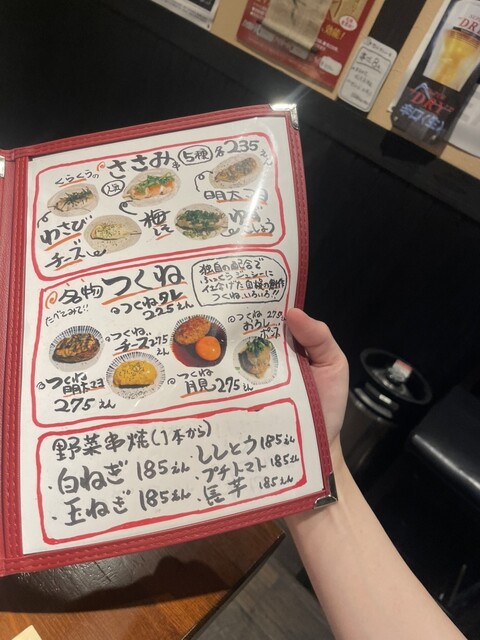 くらくうの ささみ串 5種 各235えん
わさび
梅しそ
明太マヨ
チーズ
ゆずこしょう
名物 つくね
たべてみて!!
独自の配合で
ふっくらジューシーに
仕上げた自慢の創作
つくねいろいろ!!
つくねタレ
225えん
つくね
チーズ275えん
つくね 275えん
おろしポン
つくね
明太マヨ
275えん
つくね
月見 275えん
野菜串焼(1本から)
・白ねぎ 185えん
・ししとう 185えん
・玉ねぎ 185えん
・プチトマト 185えん
・長芋 185えん
DRY
辛口〈生〉